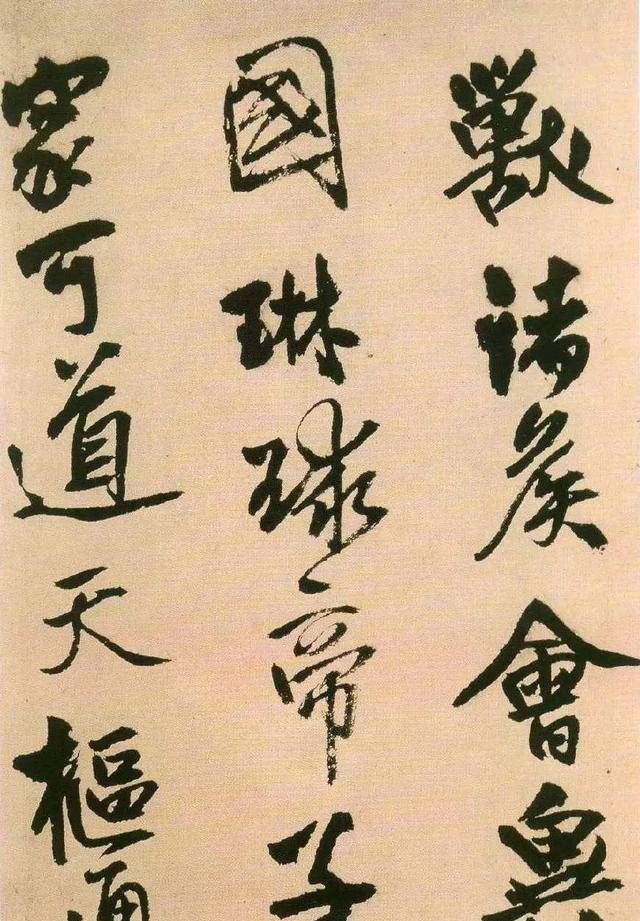 獸諸侯會
國琳球帝子
家可道天樞通